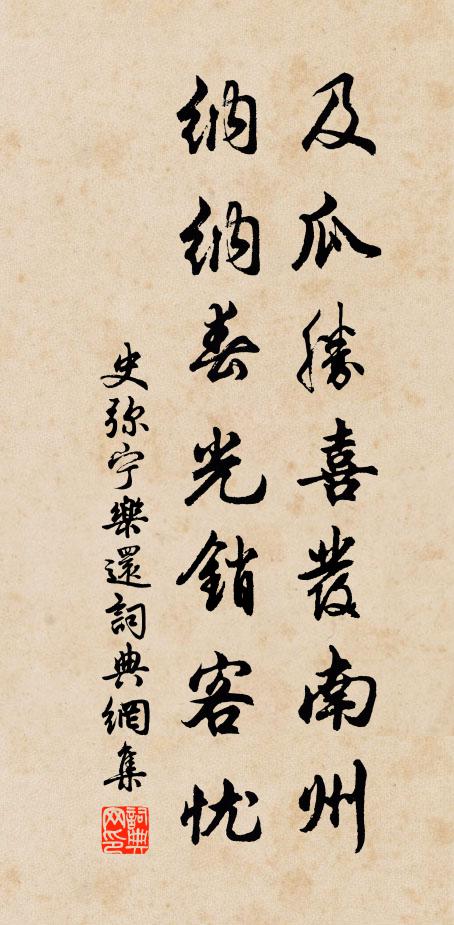 及瓜勝喜發南州
納納春光銷客忧
史弥宁樂還詞典網集
詞典网印